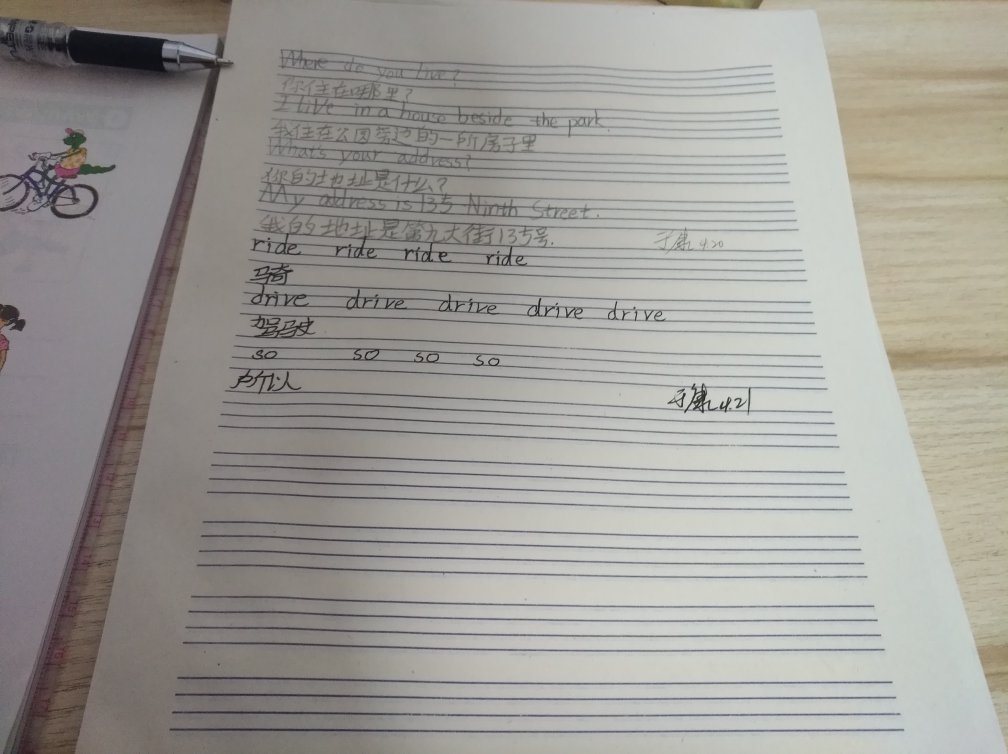 Where do you live?
你住在哪里?
I live in a house beside the park.
我住在公园旁边的一所房子里
What's your address?
你的地址是什么?
My address is 135 Ninth Street.
我的地址是第九大街135号. 于康 4.20
ride ride ride ride
骑
drive drive drive drive drive
驾驶
so so so so
所以
于康 4.21